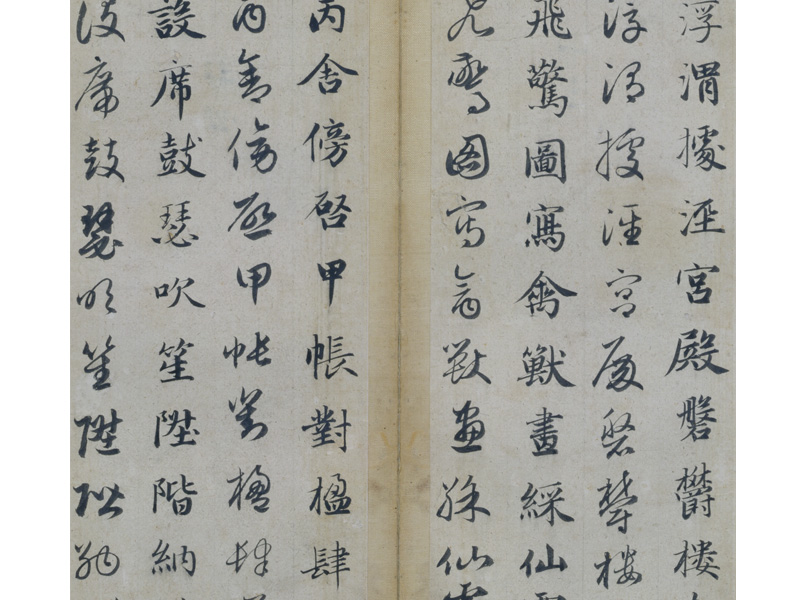 浮渭據涇宮殿磐鬱樓
浮渭據涇宮殿磐鬱樓
飛驚圖寫禽獸畫綵仙靈
飛驚圖寫禽獸畫綵仙靈
丙舍傍啓甲帳對楹肆
丙舍傍啓甲帳對楹肆
設席鼓瑟吹笙陞階納
設席鼓瑟吹笙陞階納